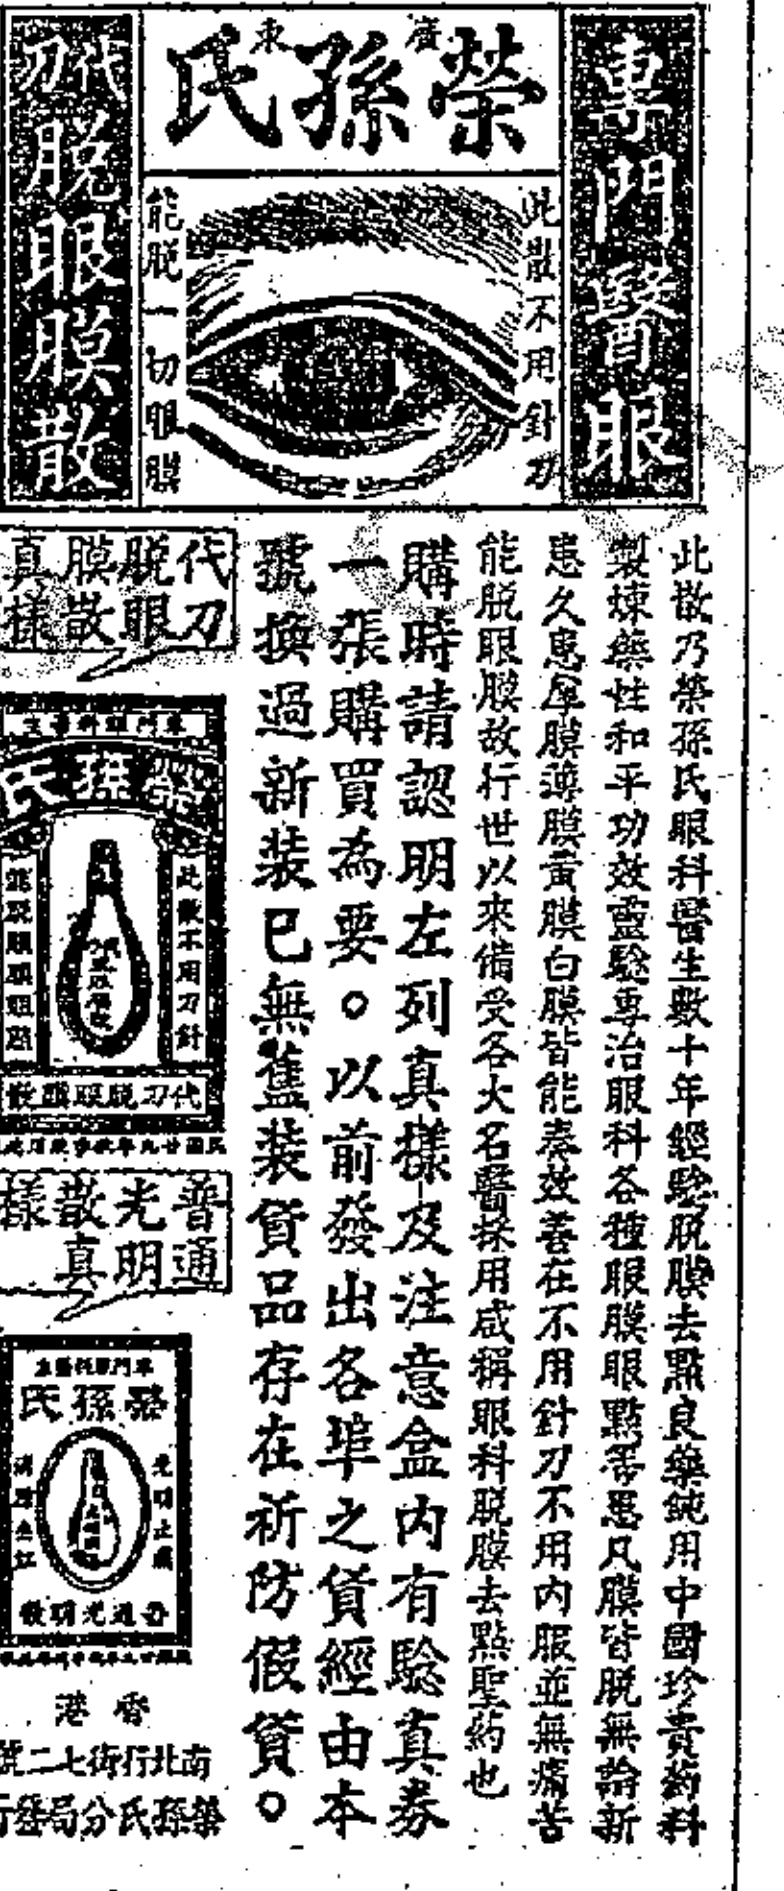 專門醫眼
廣東
榮孫氏
此散不用針刀
能脫一切眼膜
代刀脫眼膜散
此散乃榮孫氏眼科醫生數十年經驗脫膜去點良藥純用中國珍貴药料
製煉藥性和平功效靈驗專治眼科各種眼膜眼點等患凡膜皆脫無論新
患久患厚膜薄膜黃膜白膜皆能奏效善在不用針刀不用內服並無痛苦
能脫眼膜故行世以來備受各大名醫採用咸稱眼科脫膜去點聖药也
購時請認明左列真樣及注意盒內有驗真券
一張購買為要。以前發出各埠之貨經由本
號換過新裝已無舊裝貨品存在祈防假貨。
代刀
脫眼
膜散
真樣
專門眼科醫生
榮孫氏
此散不用刀針
能脫眼膜眼點
代刀脫眼膜散
普通
光明
散真
樣
專門眼科醫生
榮孫氏
光明止痛
消腫去紅
普通光明散
香港
南北行街七二號
榮孫氏分局發行